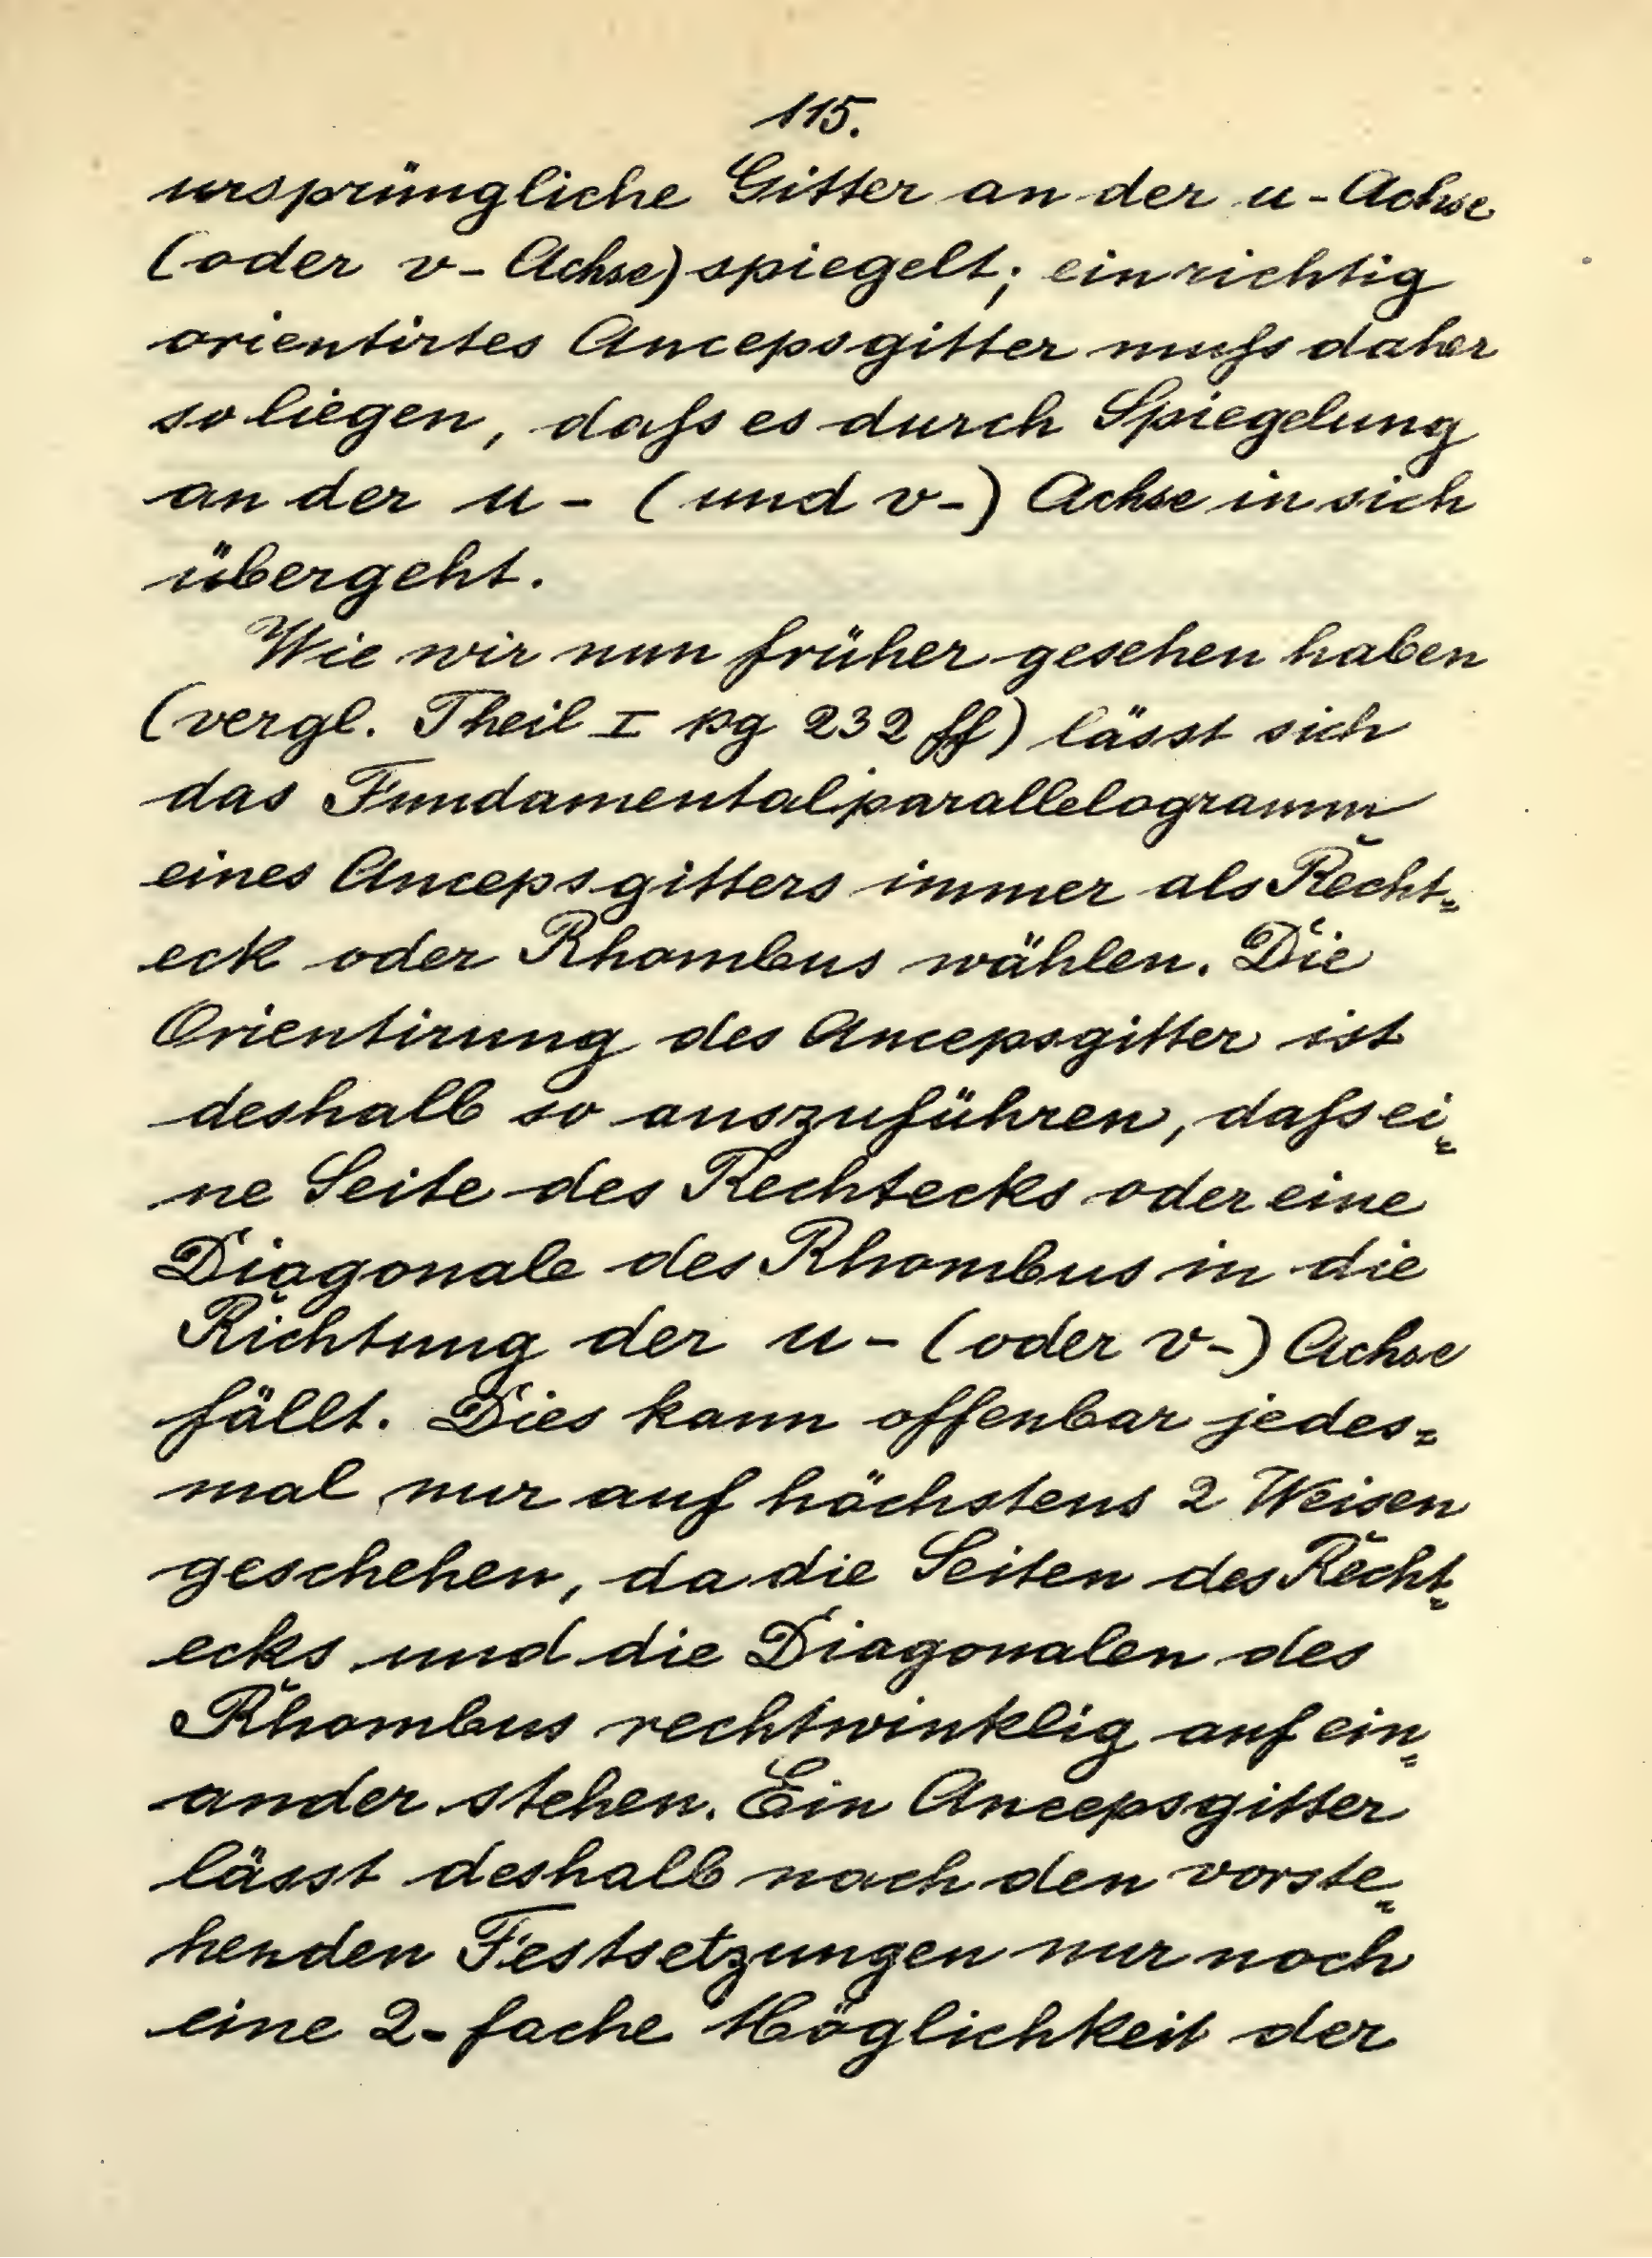 115.
ursprüngliche Gitter an der u-Achse
(oder v-Achse) spiegelt; ein richtig
orientirtes Ancepsgitter muſs daher
so liegen, daſs es durch Spiegelung
an der u- (und v-) Achse in sich
übergeht.
Wie wir nun früher gesehen haben
(vergl. Theil I pg 232 ff) lässt sich
das Fundamentalparallelogramm
eines Ancepsgitters immer als Recht=
eck oder Rhombus wählen. Die
Orientirung des Ancepsgitter ist
deshalb so auszuführen, daſs ei=
ne Seite des Rechtecks oder eine
Diagonale des Rhombus in die
Richtung der u- (oder v-) Achse
fällt. Dies kann offenbar jedes=
mal nur auf höchstens 2 Weisen
geschehen, da die Seiten des Recht=
ecks und die Diagonalen des
Rhombus rechtwinklig auf ein=
ander stehen. Ein Ancepsgitter
lässt deshalb nach den vorste=
henden Festsetzungen nur noch
eine 2-fache Möglichkeit der